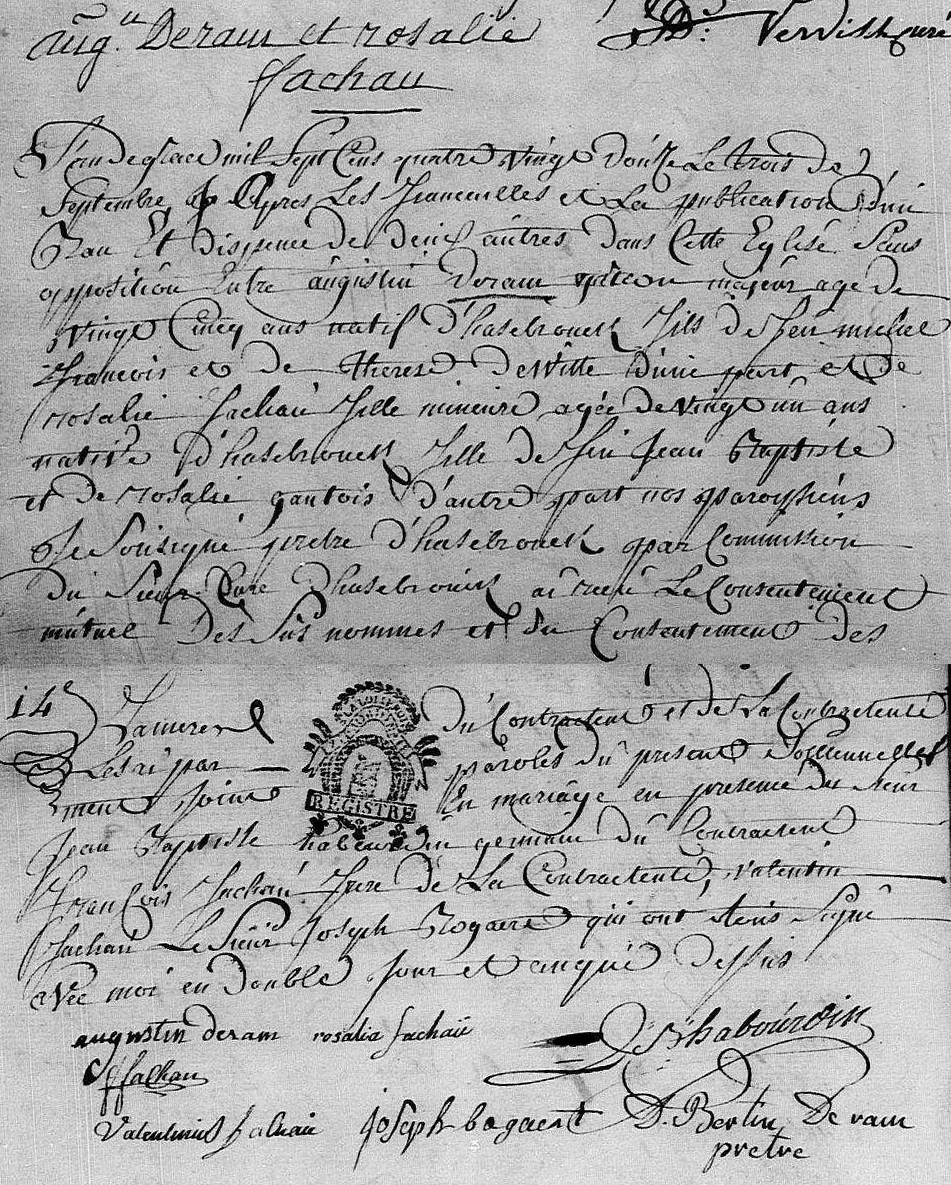 aug.in Deram et rosalie
fachau
D: Verdisscure
L'an de grace mil Sept Cens quatre vingt douze Le trois de
Septembre Apres Les francailles et La publication d'un
Ban Et dispence de deux autres dans Cette Eglise Sans
opposition Entre augustin Deram majeur agé de
vingt Cincq ans natif d'hasebrouck fils de feu michel
francois et de therese deWitte d'une part et de
rosalie fachau fille mineure agée de vingt un ans
native d'hasebrouck fille de feu Jean Baptiste
et de rosalie gantois d'autre part nos paroissiens
Je Sousigné pretre d'hasebrouck par Commission
du Sieur Curé d'hasebrouck ai recu Le Consentement
mutuel Des Sus nommes et du Consentement des
14e
La mere du Contractent et de La Contractente
Les ai par paroles du present Sollennelle
ment Joint En mariage en presence du Sieur
Jean Baptiste germain du Contractent
francois fachau frere de La Contractente, valentin
fachau Le Sieur Joseph Bogaert qui ont Signé
avec moi en double Jour et an que dessus
REGISTRE
augustin deram rosalie fachau
JB habourdin
ff fachau
Valentinus fachau Joseph bogaert D. Bertin Deram
pretre